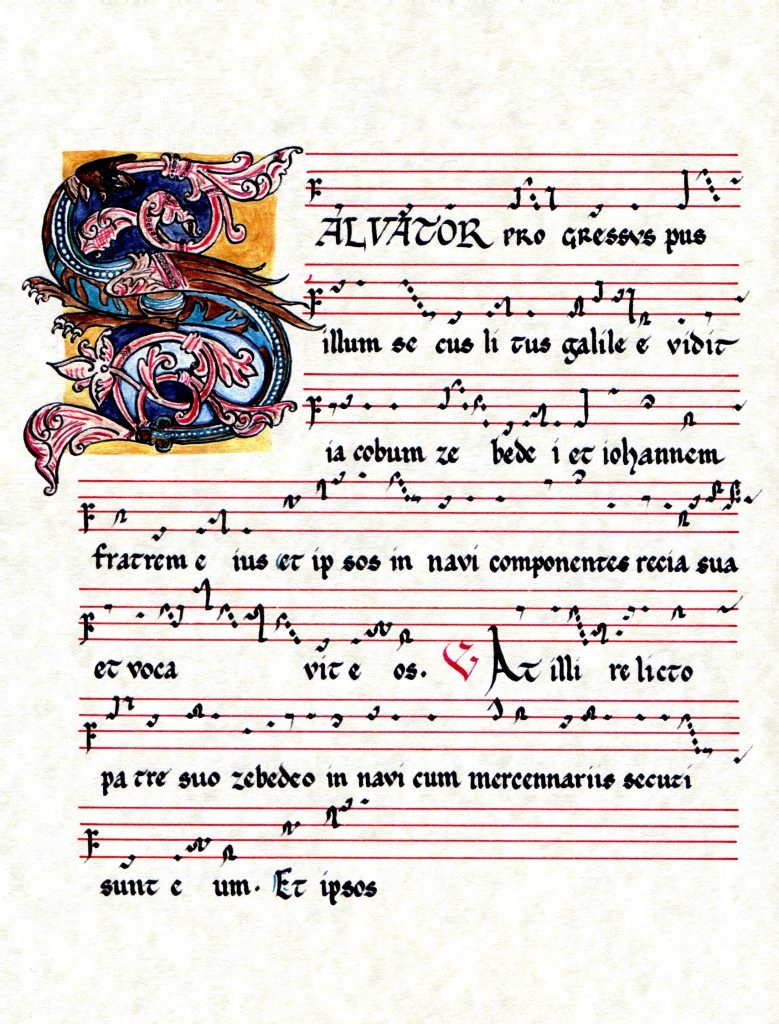 SALVATOR PRO GRESSVS PUS
illum se cus li tus galile e vidit
ia cobum ze bede i et iohannem
fratrem e ius et ip sos in navi componentes recia sua
et voca vit e os. At illi re licto
pa tre suo zebedeo in navi cum mercennariis secuti
sunt e um. Et ipsos